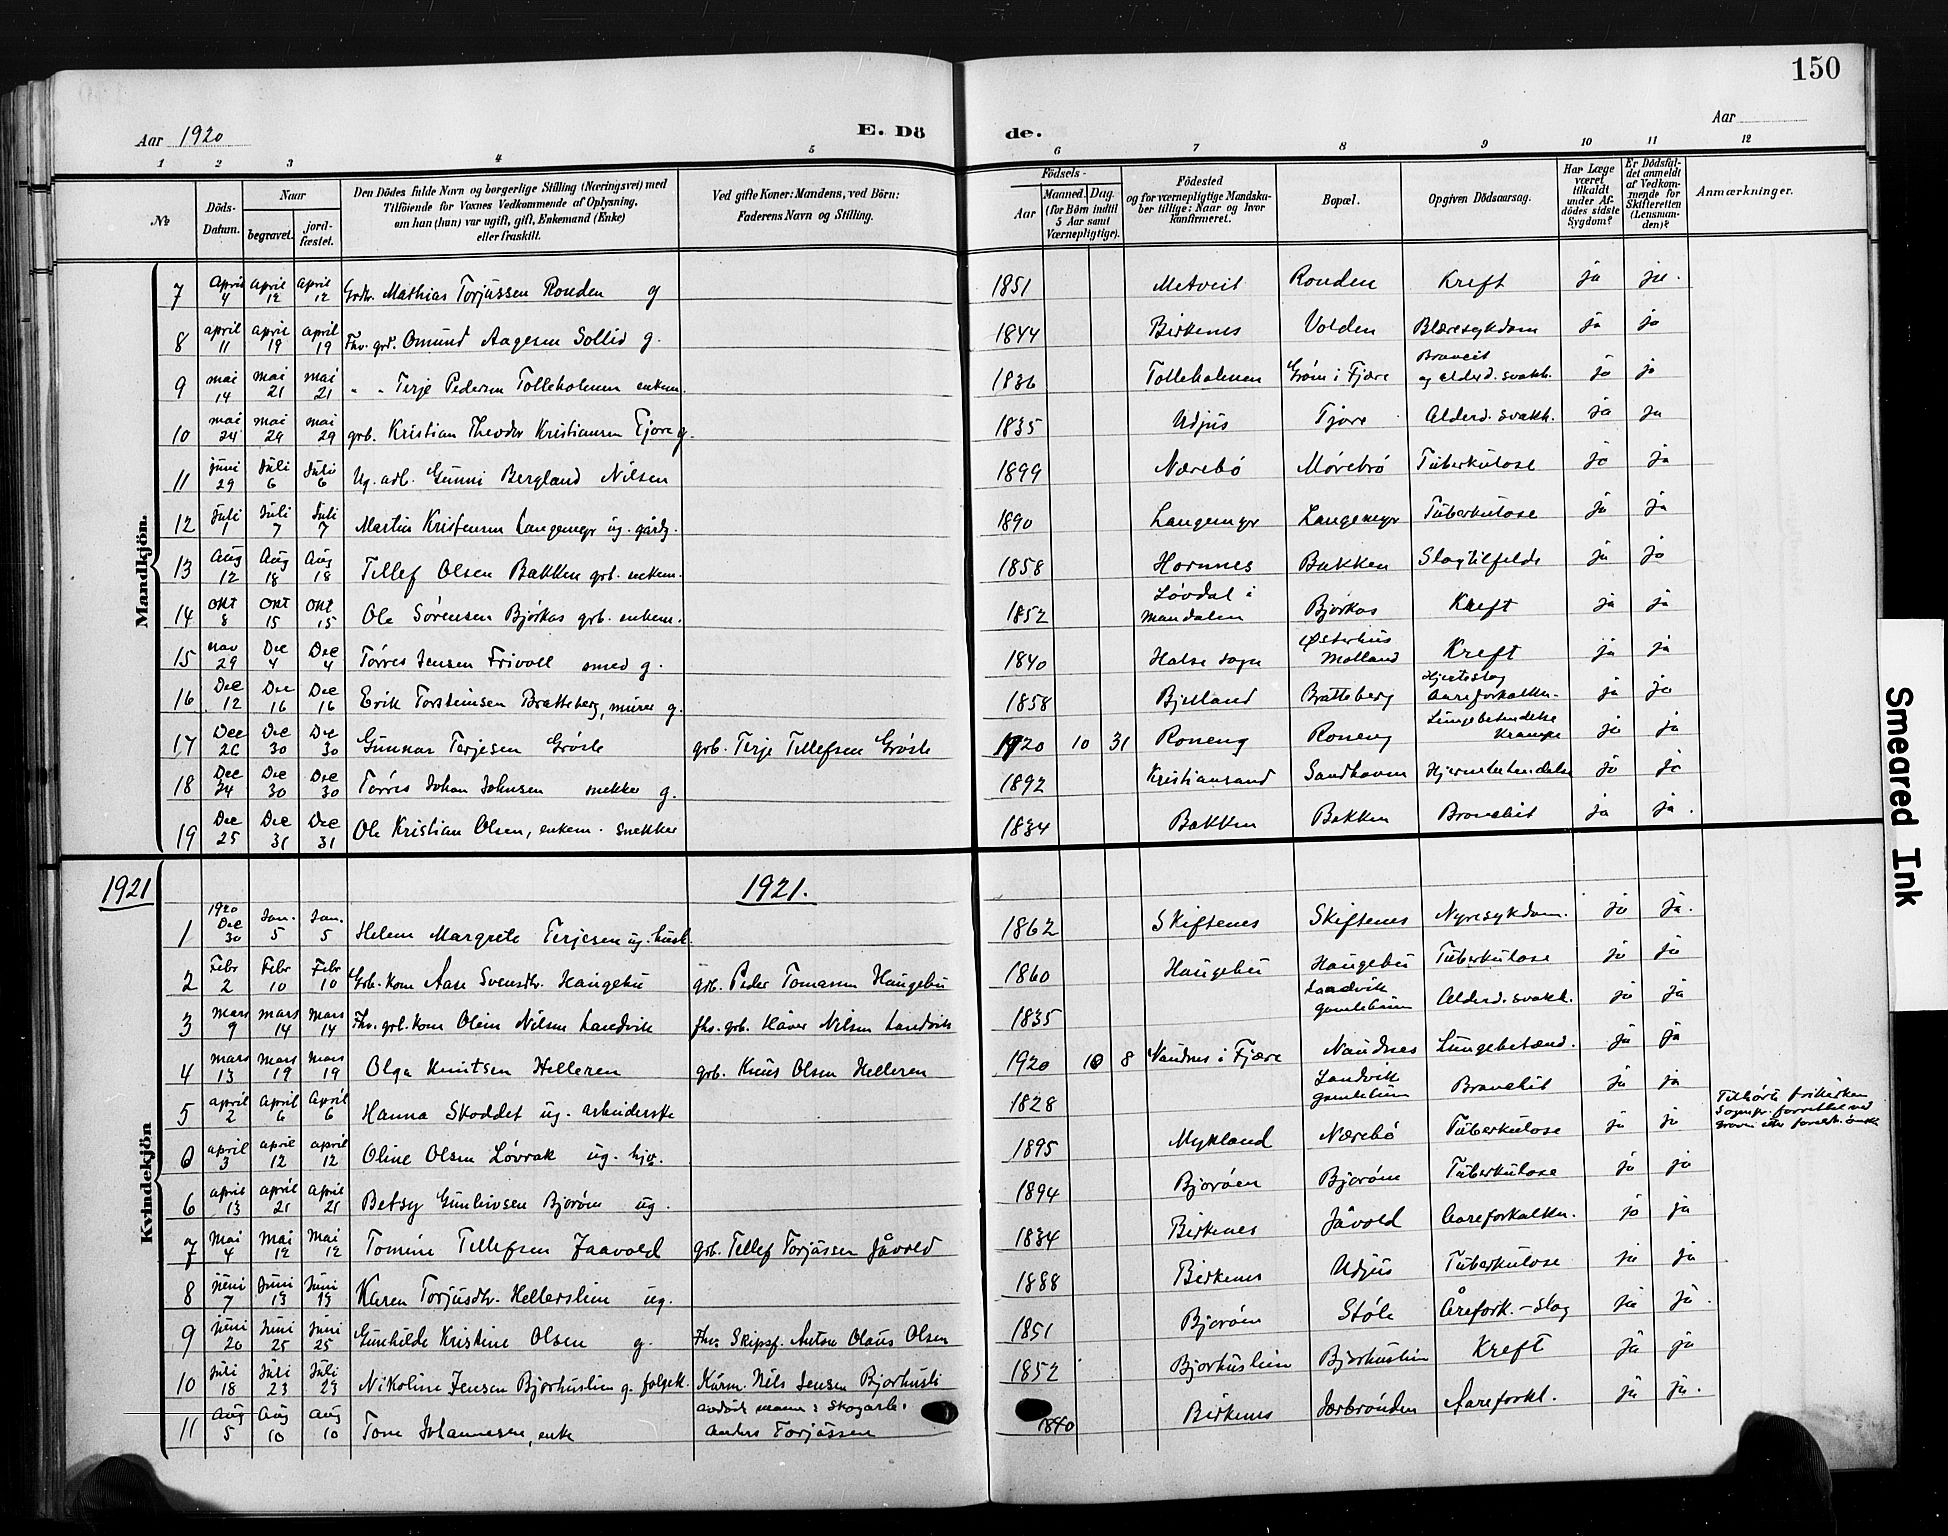 150
Aar 1920
E. Dö de.
Aar
1 2 3 4 5 6 7 8 9 10 11 12
№
Döds-Datum.
Naar
begravet.
jord-fæstet.
Den Dödes fulde Navn og borgerlige Stilling (Næringsvei) med
Tilföiende for Voxnes Vedkommende af Oplysning,
om han (hun) var ugift, gift, Enkemand (Enke)
eller fraskilt.
Ved gifte Koner: Mandens, ved Börn:
Faderens Navn og Stilling.
Födsels-
Aar
Maaned. Dag.
(for Börn indtil
5 Aar samt
Værnepligtige).
Födested
og for værnepligtige Mandska-
ber tillige: Naar og hvor
konfirmeret.
Bopæl.
Opgiven Dödsaarsag.
Har Læge
været
tilkaldt
under Af-
dödes sidste
Sygdom?
Er Dödsfal-
det anmeldt
af Vedkom-
mende for
Skifteretten
(Lensman-
den)?
Anmærkninger.
Mandkjön.
7 April 4 April 12 April 12 Grdbr. Mathias Torjussen Ronden g 1851 Metveit Ronden Kreft ja ja.
8 april 11 april 19 april 19 Fhv. grd. Omund Aagesen Sollid g. 1844 Birkenes Volden Blæresykdom ja ja
9 mai 14 mai 21 mai 21 " " Terje Pedersen Tolleholmen enkem. 1836 Tolleholmen Grøm i Fjære Broncit og alderd. svakh. ja ja
10 mai 24 mai 29 mai 29 grb. Kristian Theodor Kristiansen Tjore g. 1835 Udjus Tjore Alderd. svakh. ja ja
11 juni 29 Juli 6 Juli 6 Ug. arb. Gunni Bergland Nilsen 1899 Nærebö Mörebrö Tuberkulose ja ja
12 Juli 1 Juli 7 Juli 7 Martin Kristensen Langemyr ug. gårdg. 1890 Langemyr Langemyr Tuberkulose ja ja
13 Aug 12 Aug 18 Aug 18 Tellef Olsen Bakken grb. enkem. 1858 Hornnes Bakken Slagtilfelde ja ja
14 Okt 8 Okt 15 Okt 15 Ole Sörensen Bjorkås grb. enkem. 1852 Lövdal i Mandalen Bjorkås Kreft ja ja
15 nov 29 Dec 4 Dec 4 Törres Jensen Frivoll smed g. 1840 Halse sogn Østerhus Molland Kreft ja ja
16 Dec 12 Dec 16 Dec 16 Erik Torsteinsen Bratteberg, murer g. 1858 Bjelland Bratteberg Hjerteslag Aareforkalkn. ja ja
17 Dec 26 Dec 30 Dec 30 Gunnar Terjesen Grösle grb. Terje Tellefsen Grösle 1920 10 31 Roneng Roneng Lungebetendelse Krampe ja ja
18 Dec 24 Dec 30 Dec 30 Törres Johan Johnsen snekker g. 1892 Kristiansand Sandhaven Hjernebetendelse ja ja
19 Dec 25 Dec 31 Dec 31 Ole Kristian Olsen, enkem. snekker 1834 Bakken Bakken Bronchit ja ja.
1921 1921.
Kvindekjön
1 1920 Dec 30 Jan. 5 Jan. 5 Helene Margrete Terjesen ug. husl. 1862 Skiftenes Skiftenes Nyresykdom. ja ja.
2 Febr 2 Febr 10 Febr 10 Grb. kone Aase Svensdtr. Haugebu grb. Peder Tomassen Haugebu 1860 Haugebu Haugebu Tuberkulose ja ja
3 mars 9 mars 14 mars 14 Fhv. grb. kone Oline Nilsen Landvik fhv. grb. Håver Nilsen Landvik 1835 Landvik gamlehiem Alderd. svakh. ja ja
4 mars 13 mars 19 mars 19 Olga Knutsen Helleren grb. Knut Olsen Helleren 1920 10 8 Naudnes i Fjære Naudnes Lungebetænd. ja ja
5 april 2 April 6 April 6 Hanna Skoddet ug. arbeiderske 1828 Landvik gamlehiem Bronchit ja ja
6 april 3 april 12 april 12 Oline Olsen Lövrak ug. hjv. 1895 Mykland Nærebö Tuberkulose ja ja Tilhörte frikirken Sognepr. forrettet ved graven efter foreldr. önske
6 april 13 april 21 april 21 Betsy Gunluvsen Bjoröen ug. 1894 Bjoröen Bjoröen Tuberkulose ja ja
7 Mai 4 Mai 12 Mai 12 Tomine Tellefsen Jaavold grb. Tellef Torjussen Jåvold 1834 Birkenes Jåvold Aareforkalkn. ja ja
8 juni 7 Juni 13 Juni 13 Karen Torjusdtr. Hellerslien ug. 1888 Birkenes Udjus Tuberkulose ja ja
9 juni 20 Juni 25 Juni 25 Gunhilde Kristine Olsen g. Fhv. Skipsf. Anton Olaus Olsen 1851 Bjoröen Støle Årefork. - Slag ja ja.
10 Juli 18 Juli 23 Juli 23 Nikoline Jensen Bjorhuslien g. folgek. Kårm. Nils Jensen Bjorhusli 1852 Bjorhuslien Bjorhuslien Kreft ja ja
11 Aug 5 Aug 10 Aug 10 Tone Johannesen, enke avdöde mann: Skogarb. Anders Torjussen 1840 Birkenes Jærbrönden Aareforkl. ja ja.
Smeared Ink